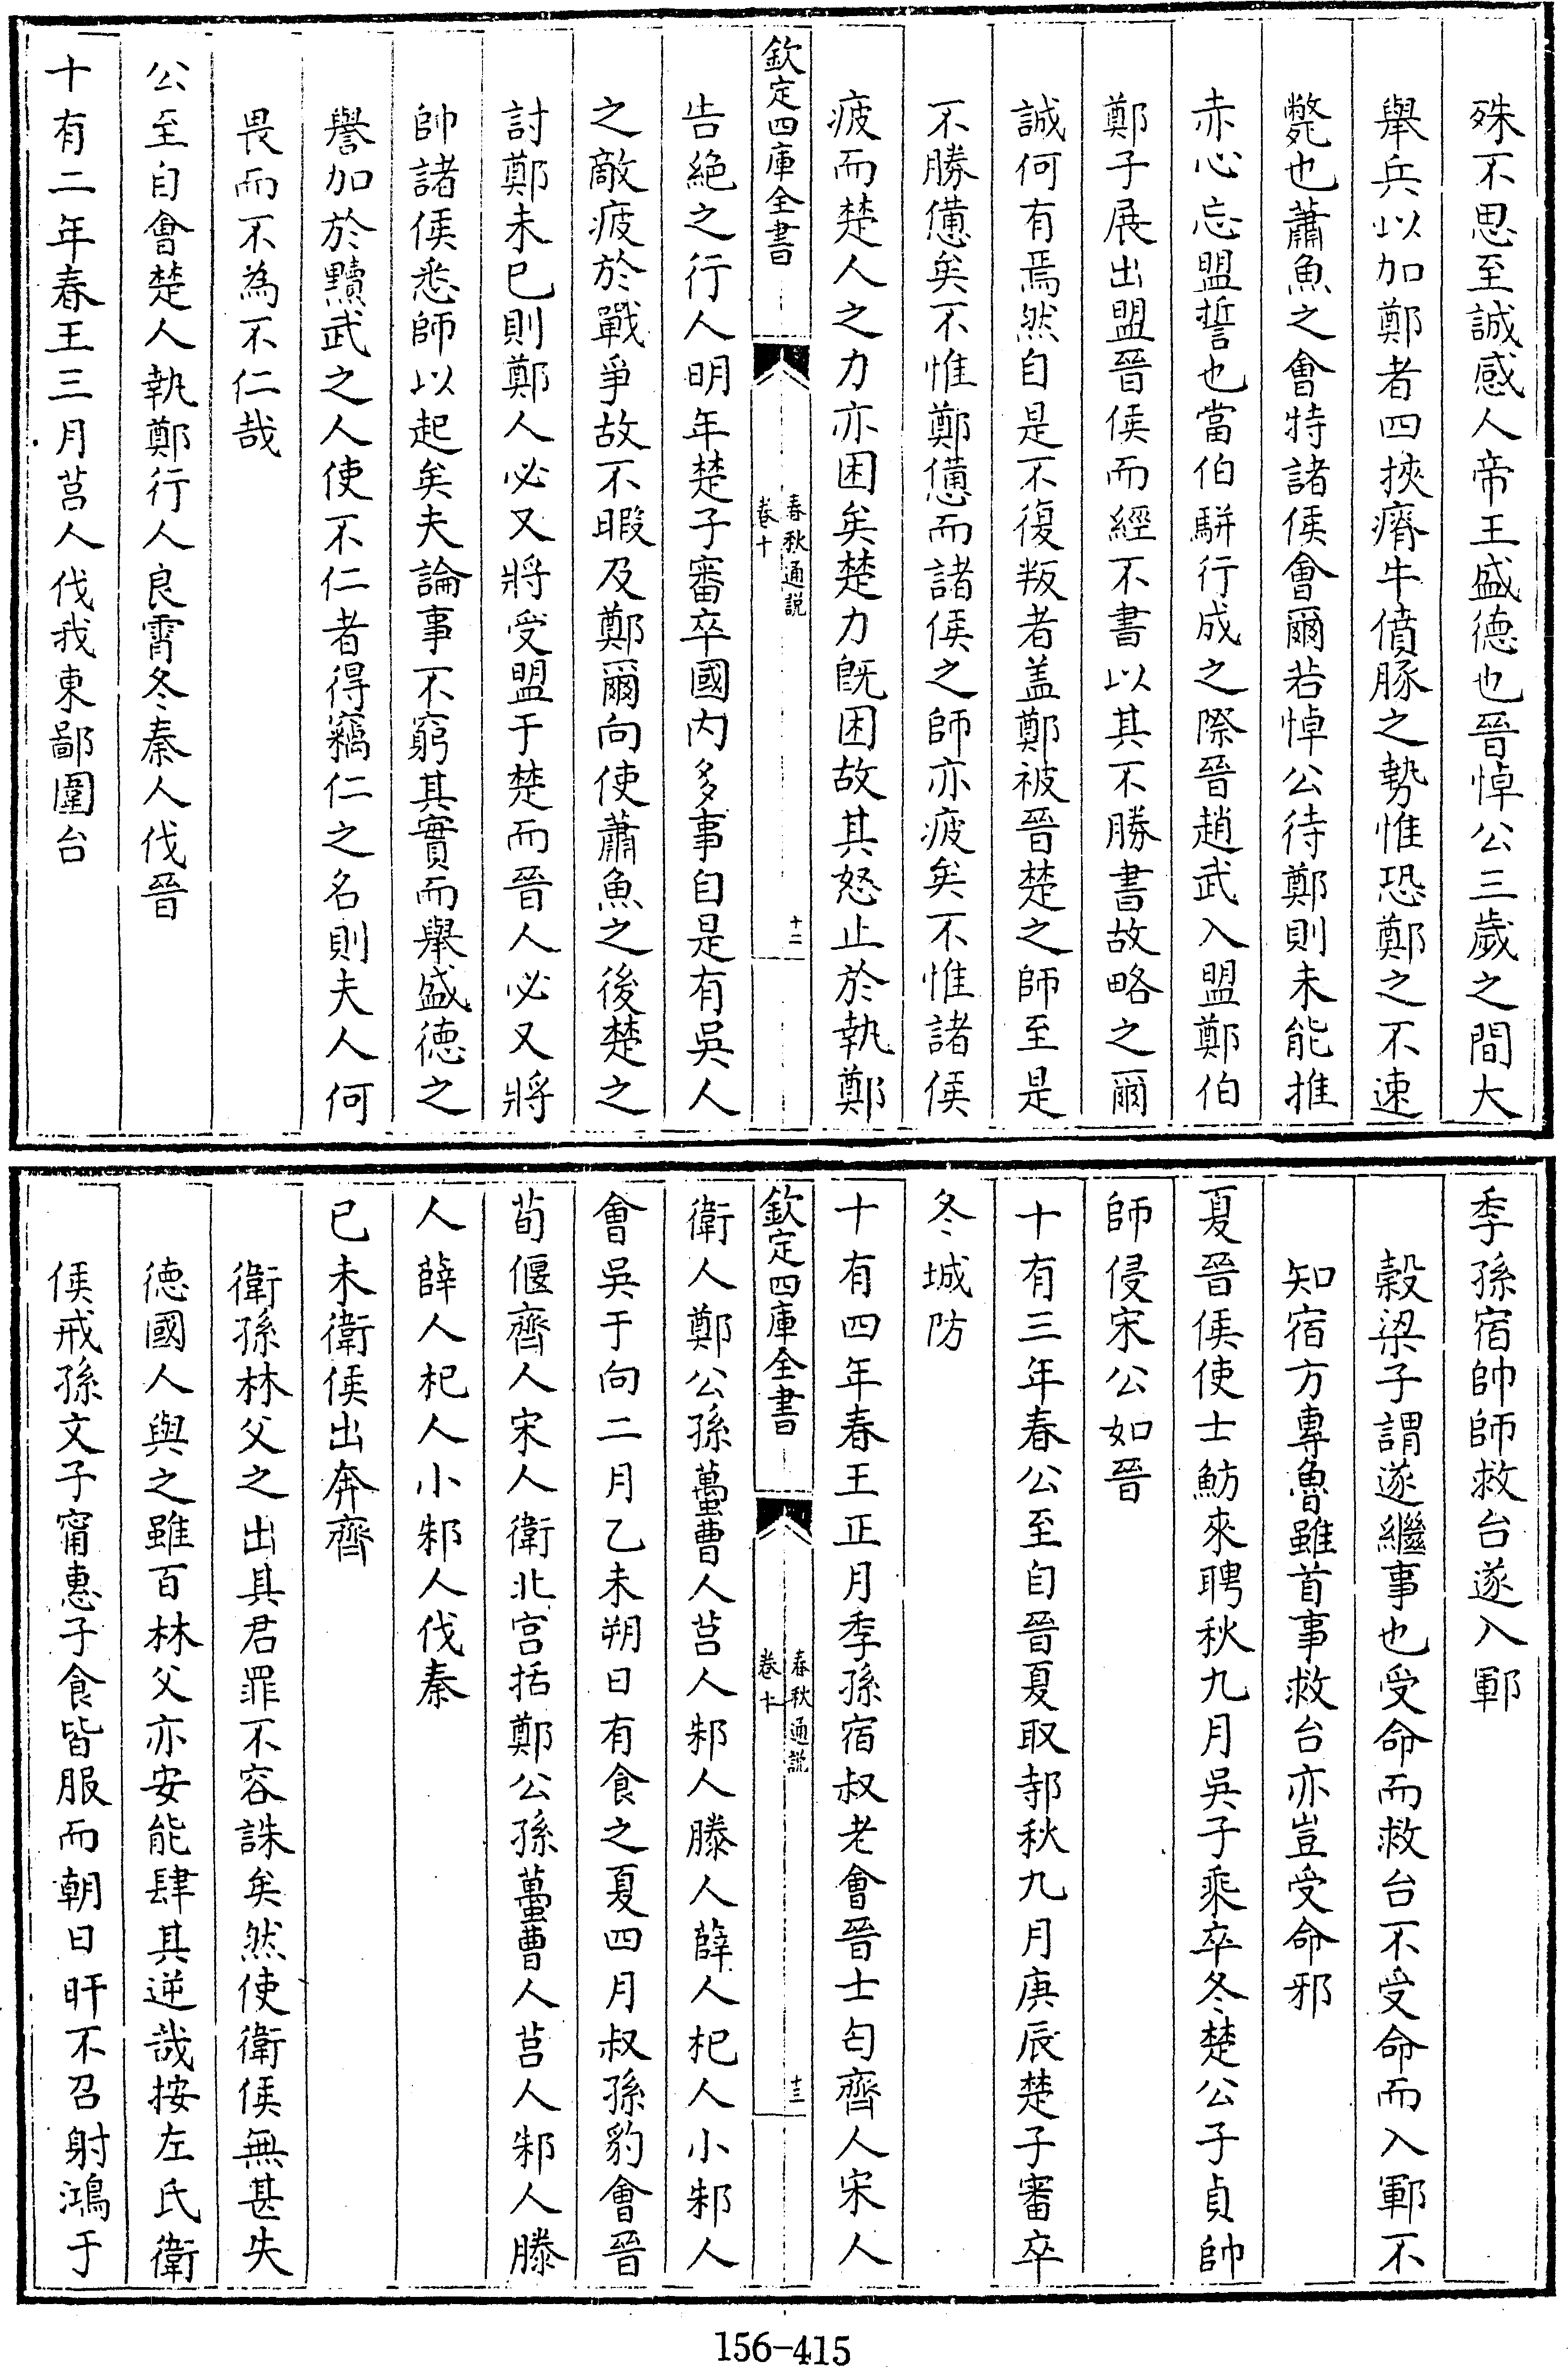 殊不思至誠感人帝王盛徳也晉悼公三歲之間大
舉兵以加鄭者四挾瘠牛僨豚之勢惟恐鄭之不速
斃也蕭魚之會特諸侯會爾若悼公待鄭則未能推
赤心忘盟誓也當伯駢行成之際晉趙武入盟鄭伯
鄭子展出盟晉侯而經不書以其不勝書故略之爾
誠何有焉然自是不復叛者盖鄭被晉楚之師至是
不勝憊矣不惟鄭憊而諸侯之師亦疲矣不惟諸侯
疲而楚人之力亦困矣楚力既困故其怒止於執鄭
欽定四庫全書
春秋通説
卷十
十二
告絶之行人明年楚子審卒國内多事自是有吳人
之敵疲於戰爭故不暇及鄭爾向使蕭魚之後楚之
討鄭未已則鄭人必又將受盟于楚而晉人必又將
帥諸侯悉師以起矣夫論事不窮其實而舉盛徳之
譽加於黷武之人使不仁者得竊仁之名則夫人何
畏而不為不仁哉
公至自會楚人執鄭行人良霄冬秦人伐晉
十有二年春王三月莒人伐我東鄙圍台
季孫宿帥師救台遂入鄆
穀梁子謂遂繼事也受命而救台不受命而入鄆不
知宿方專魯雖首事救台亦豈受命邪
夏晉侯使士魴來聘秋九月吳子乘卒冬楚公子貞帥
師侵宋公如晉
十有三年春公至自晉夏取邿秋九月庚辰楚子審卒
冬城防
十有四年春王正月季孫宿叔老會晉士匄齊人宋人
欽定四庫全書
春秋通説
卷十
十三
衛人鄭公孫蠆曹人莒人邾人滕人薛人杞人小邾人
會吳于向二月乙未朔日有食之夏四月叔孫豹會晉
荀偃齊人宋人衛北宫括鄭公孫蠆曹人莒人邾人滕
人薛人杞人小邾人伐秦
已未衛侯出奔齊
衛孫林父之出其君罪不容誅矣然使衛侯無甚失
徳國人與之雖百林父亦安能肆其逆哉按左氏衛
侯戒孫文子甯惠子食皆服而朝日旰不召射鴻于
156-415